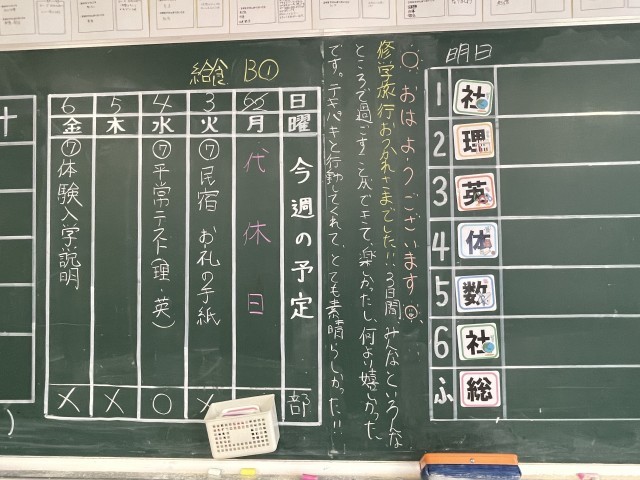 明日
1 社
2 理
3 英
4 体
5 数
6 社
ふ 総
おはようございます
修学旅行おつかれさまでした!!3日間みんなといろんな
ところで過ごすことができて、楽しかったし、何より嬉しかった
です。テキパキと行動してくれて、とても素晴らしかった!!
給食 B①
日 曜 今週の予定 部
月 代休日
3 火 ⑦民宿 お礼の手紙 ×
4 水 ⑦平常テスト(理・英) ○
5 木 ×
6 金 ⑦体験入学説明 ×